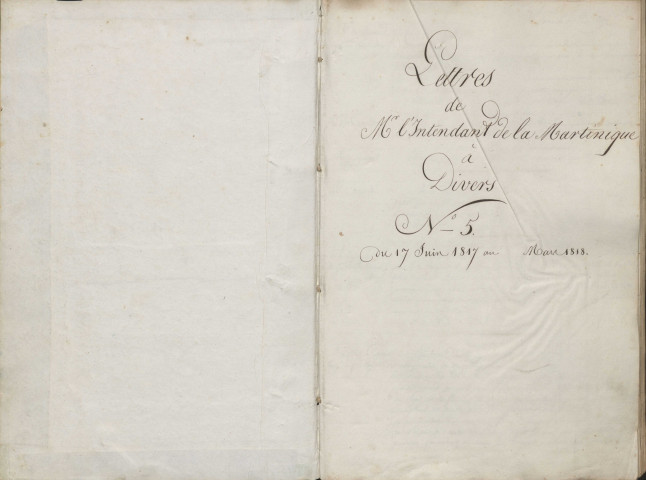 Lettres
de
Mr l'Intendant de la Martinique
à
Divers
No 5.
du 17 Juin 1817 au Mars 1818.